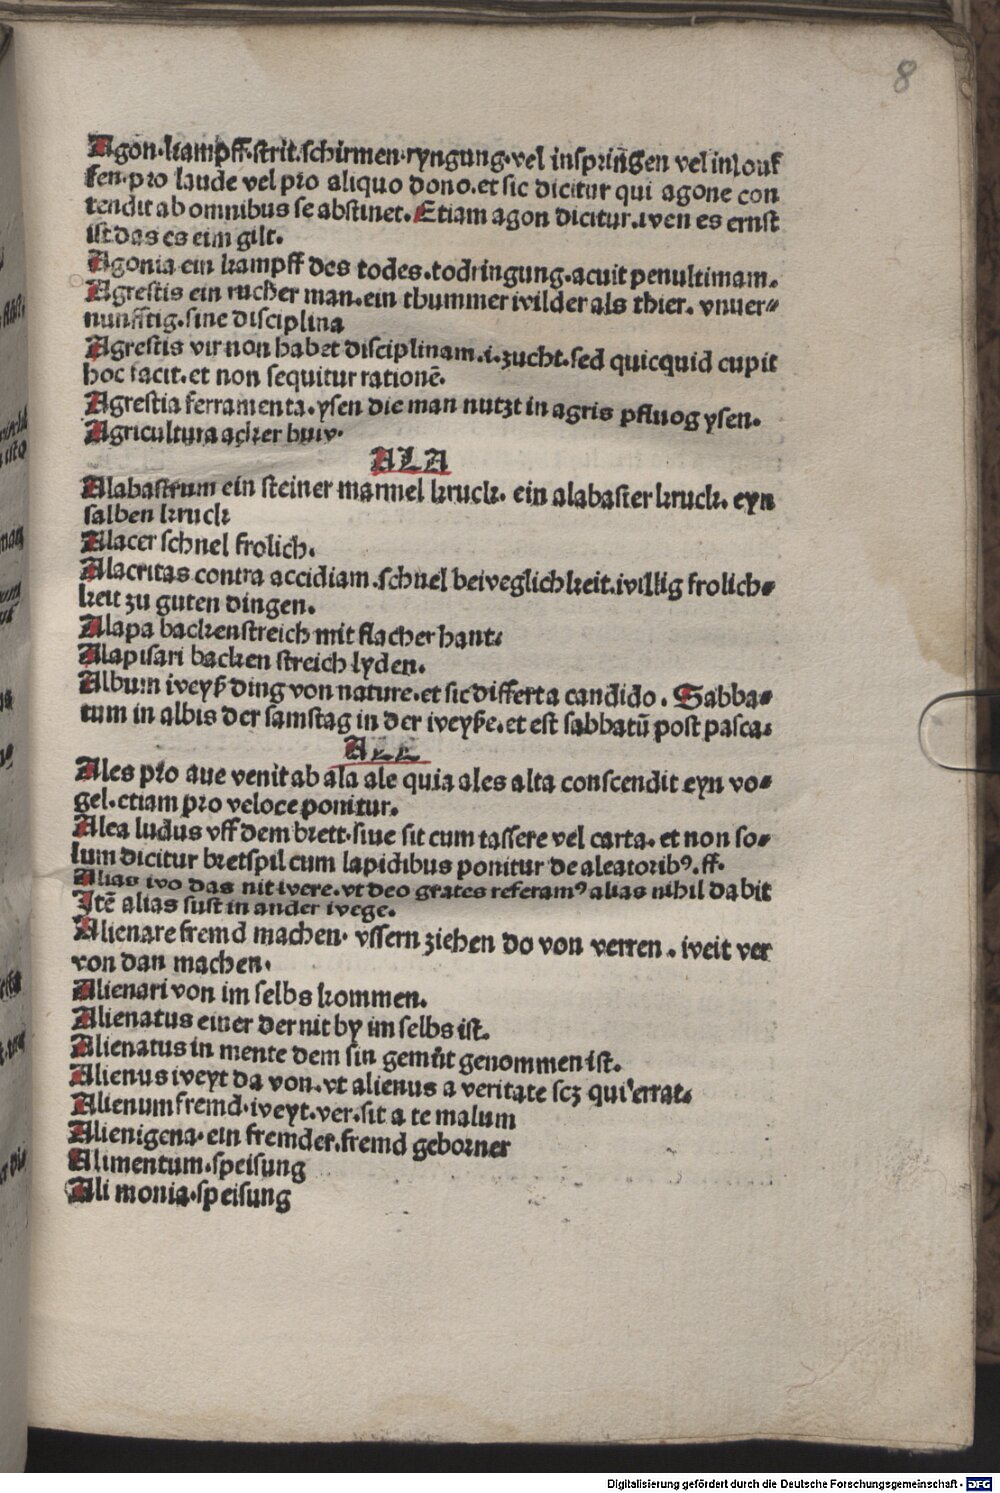 8
Agon·kampff·strit·schirmen·ryngung·vel inspringen vel inlouf
fen·pro laude vel pro aliquo dono.et sic dicitur qui agone con
tendit ab omnibus se abstinet. Etiam agon dicitur.wen es ernst
ist das es eim gilt.
Agonia ein kampff des todes.todringung.acuit penultimam.
Agrestis ein rucher man.ein thummer wilder als thier. vnuer-
nunfftig.sine disciplina
Agrestis vir non habet disciplinam.i.zucht.sed quicquid cupit
hoc facit.et non sequitur rationē.
Agrestia ferramenta.ysen die man nutzt in agris pfluog ysen.
Agricultura acker buw·
ALA
Alabastrum ein steiner marmel kruck. ein alabaster kruck. eyn
salben kruck
Alacer schnel frolich.
Alacritas contra accidiam.schnel beweglichkeit.willig frolich-
keit zu guten dingen.
Alapa backenstreich mit flacher hant.
Alapisari backen streich lyden.
Album weyß ding von nature.et sic differt a candido. Sabba-
tum in albis der samstag in der weyße.et est sabbatū post pasca.
ALE
Ales pro aue venit ab ala ale quia ales alta conscendit eyn vo-
gel.etiam pro veloce ponitur.
Alea ludus vff dem brett·siue sit cum tassere vel carta. et non so-
lum dicitur bretspil cum lapidibus ponitur de aleatoribꝰ.ff.
Alias wo das nit were.vt deo grates referamꝰ alias nihil dabit
Itē alias sust in ander wege.
Alienare fremd machen· vssern ziehen do von verren . weit ver
von dan machen.
Alienari von im selbs kommen.
Alienatus einer der nit by im selbs ist.
Alienatus in mente dem sin gemüt genommen ist.
Alienus weyt da von.vt alienus a veritate scz qui errat.
Alienum fremd·weyt.ver.sit a te malum
Alienigena·ein fremder.fremd geborner
Alimentum.speisung
Ali monia.speisung
Digitalisierung gefördert durch die Deutsche Forschungsgemeinschaft - DFG